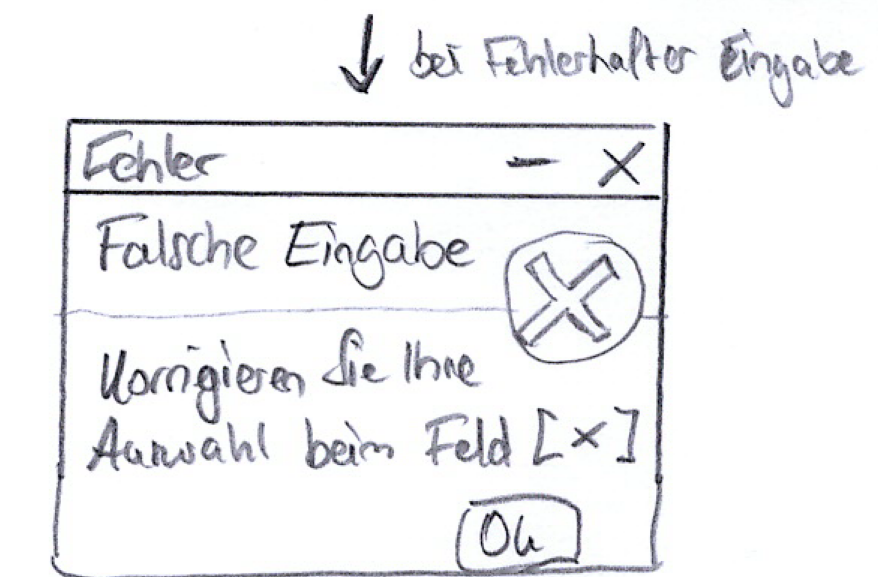 bei Fehlerhafter Eingabe
Fehler - X
Falsche Eingabe
Korrigieren Sie Ihre
Auswahl beim Feld [x]
Ok